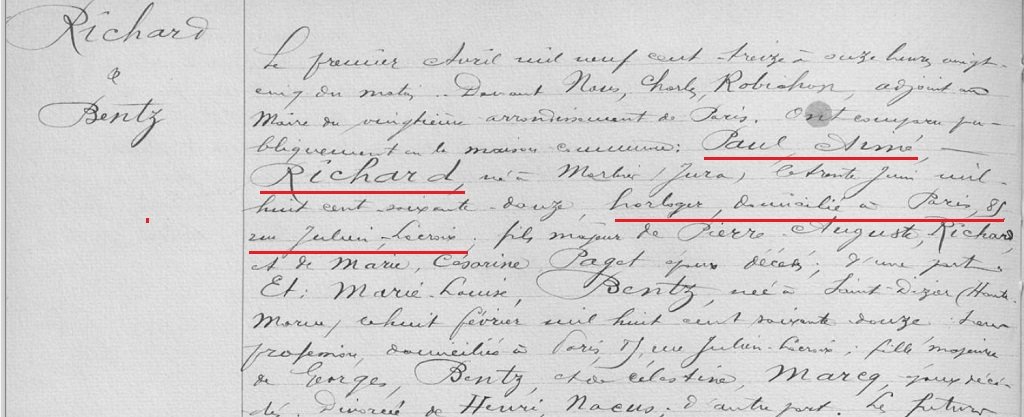 Richard
&
Bentz
Le premier Avril mil neuf cent treize à onze heures vingt-
cinq du matin. Devant Nous, Charles, Robichon, adjoint au
Maire du vingtième arrondissement de Paris. Ont comparu pu-
bliquement en la maison commune: Paul, Aimé, —
Richard, né à Morbier (Jura) le trente Juin mil-
huit cent soixante-douze, horloger, domicilié à Paris, 85
rue Julien-Lacroix, fils majeur de Pierre-Auguste, Richard
et de Marie, Césarine Paget époux décédés; d'une part
Et: Marie-Louise, Bentz, née à Saint-Dizier (Haute-
Marne) le huit février mil huit cent soixante douze sans
profession, domiciliée à Paris 85, rue Julien-Lacroix; fille majeure
de Georges, Bentz, et de Célestine, Marcq, époux décé-
dés. Divorcée de Henri, Nacus. d'autre part. Les futurs